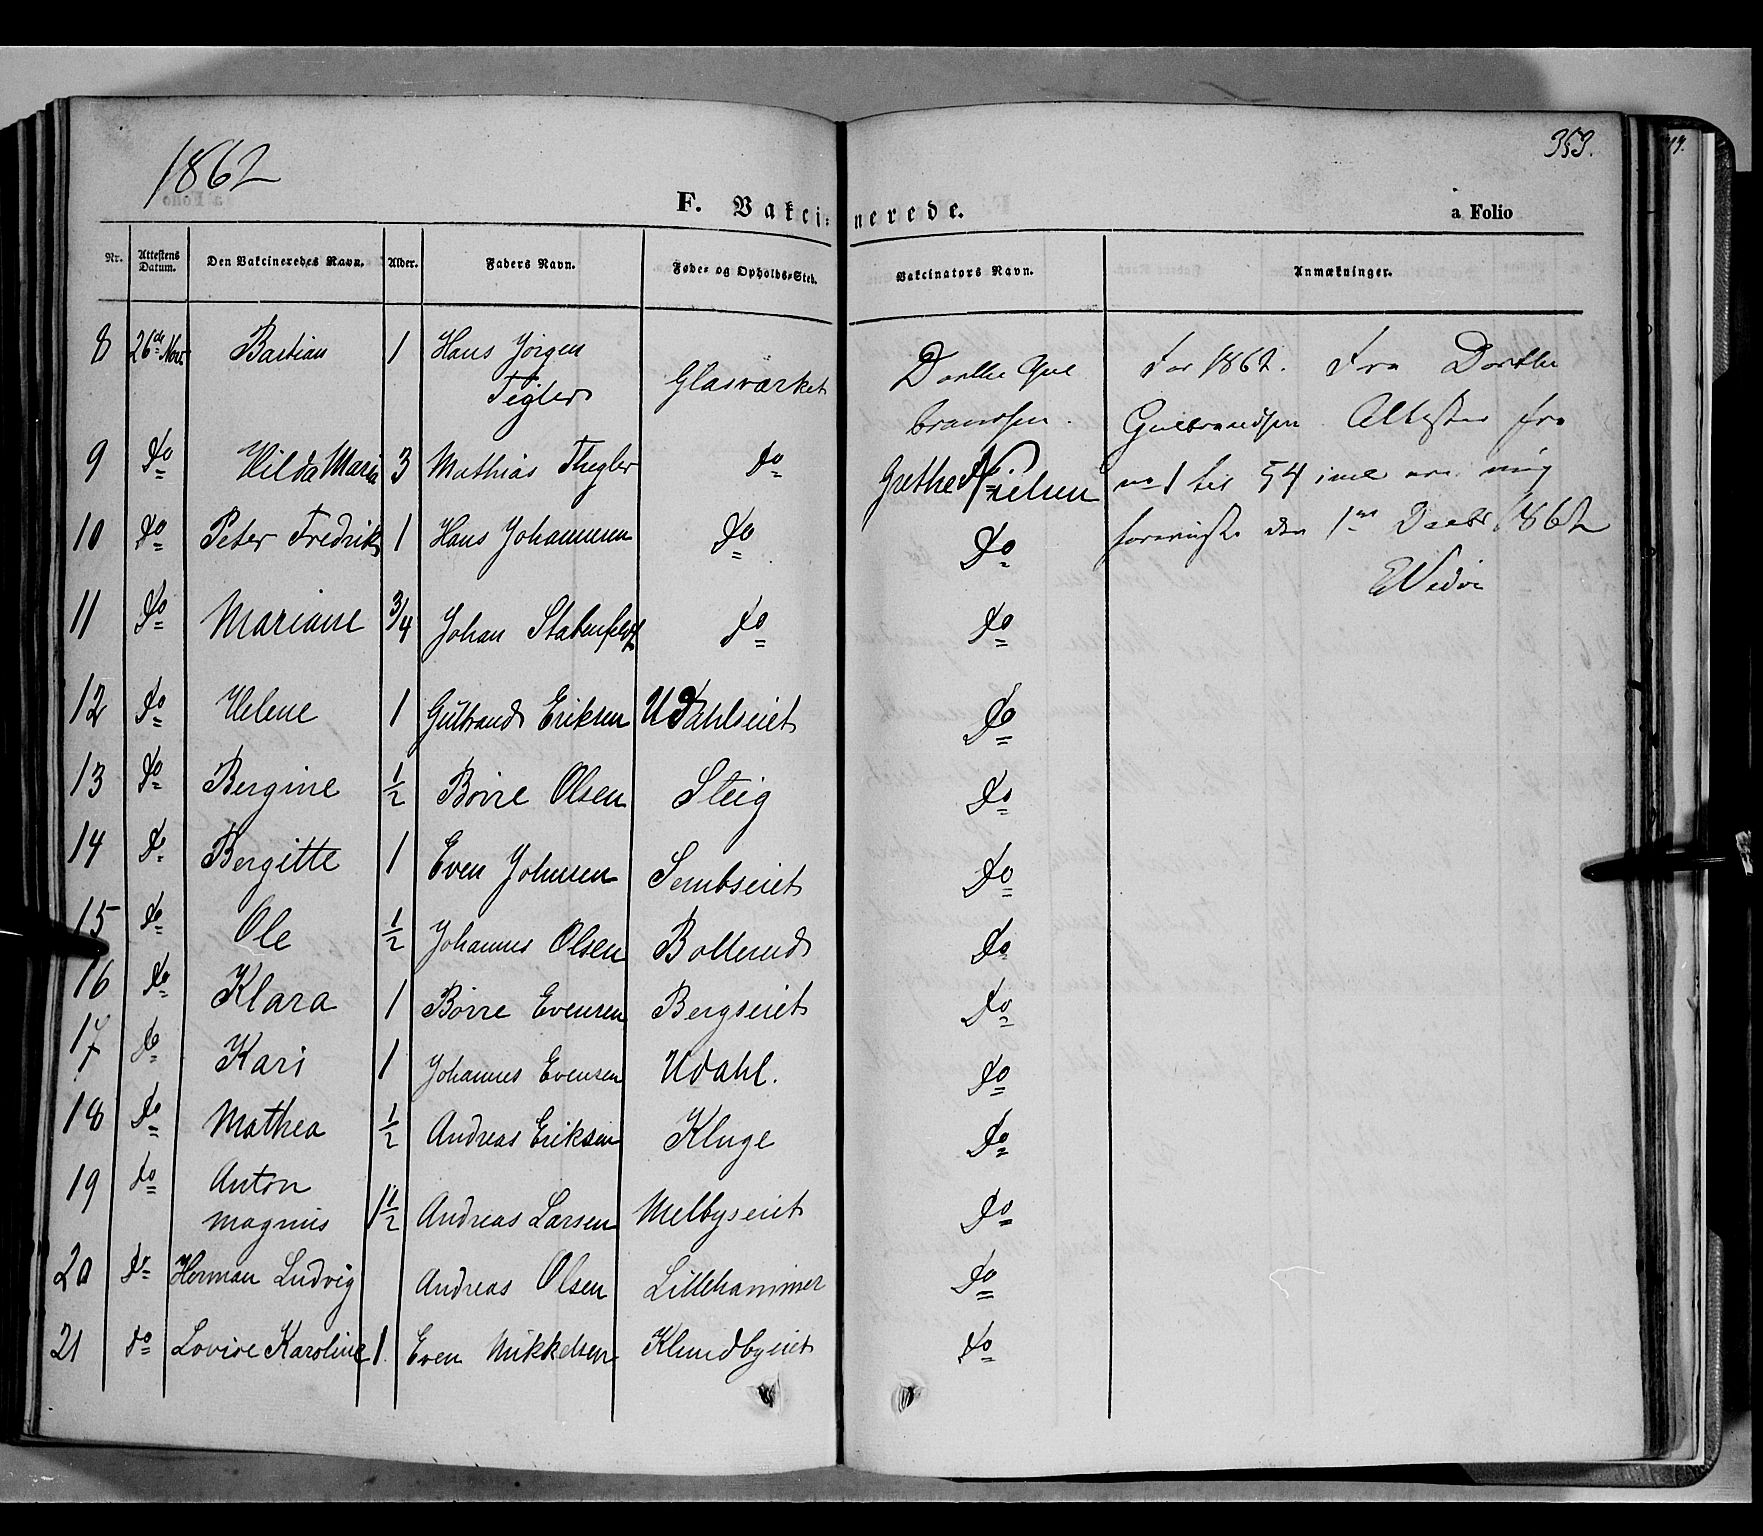 1862
353.
F. Vakcinerede.
a Folio
Nr. Attestens Datum. Den Vakcineredes Navn. Alder. Faders Navn. Føde- og Opholds-Sted. Vakcinators Navn. Anmærkninger.
8 26de Novr. Bastian 1 Hans Jørgen Tigler Glasværket Dorthe Gulbrandsen
9 Do Hilda Maria 3 Mathias Thegler Do Grethe Nielsen
10 Do Peter Fredrik 1 Hans Johannesen Do Do
11 Do Mariane 3/4 Johan Stabenfeldt Do Do
12 Do Helene 1 Gulbrand Eriksen Udahlseiet Do
13 Do Bergine 1/2 Börre Olsen Steig Do
14 Do Bergitte 1 Even Johnsen Sembseiet Do
15 Do Ole 1/2 Johannes Olsen Bollerud Do
16 Do Klara 1 Börre Evensen Bergseiet Do
17 Do Kari 1 Johannes Evensen Udahl. Do
18 Do Mathea 1/2 Andreas Eriksen Kluge Do
19 Do Anton Magnus 1 1/2 Andreas Larsen Melbyseiet Do
20 Do Herman Ludvig Andreas Olsen Lillehammer Do
21 Do Lovise Karoline 1. Even Mikkelsen Klundbyeiet Do
For 1862. Fra Dorthe
Gulbrandsen Attester fra
no 1 til 54 incl
den 1ste Decbr 1862